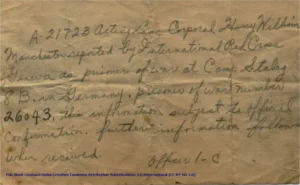 A-21723 Acting Lanc Corporal Harry Wilkin
Manchester reported by International Red Cross
Geneva as prisoner of war at Camp Stalag
8 B. in Germany, prisoner of war number
26043, this information subject to official
confirmation. further information follows
when received. Officer I-C